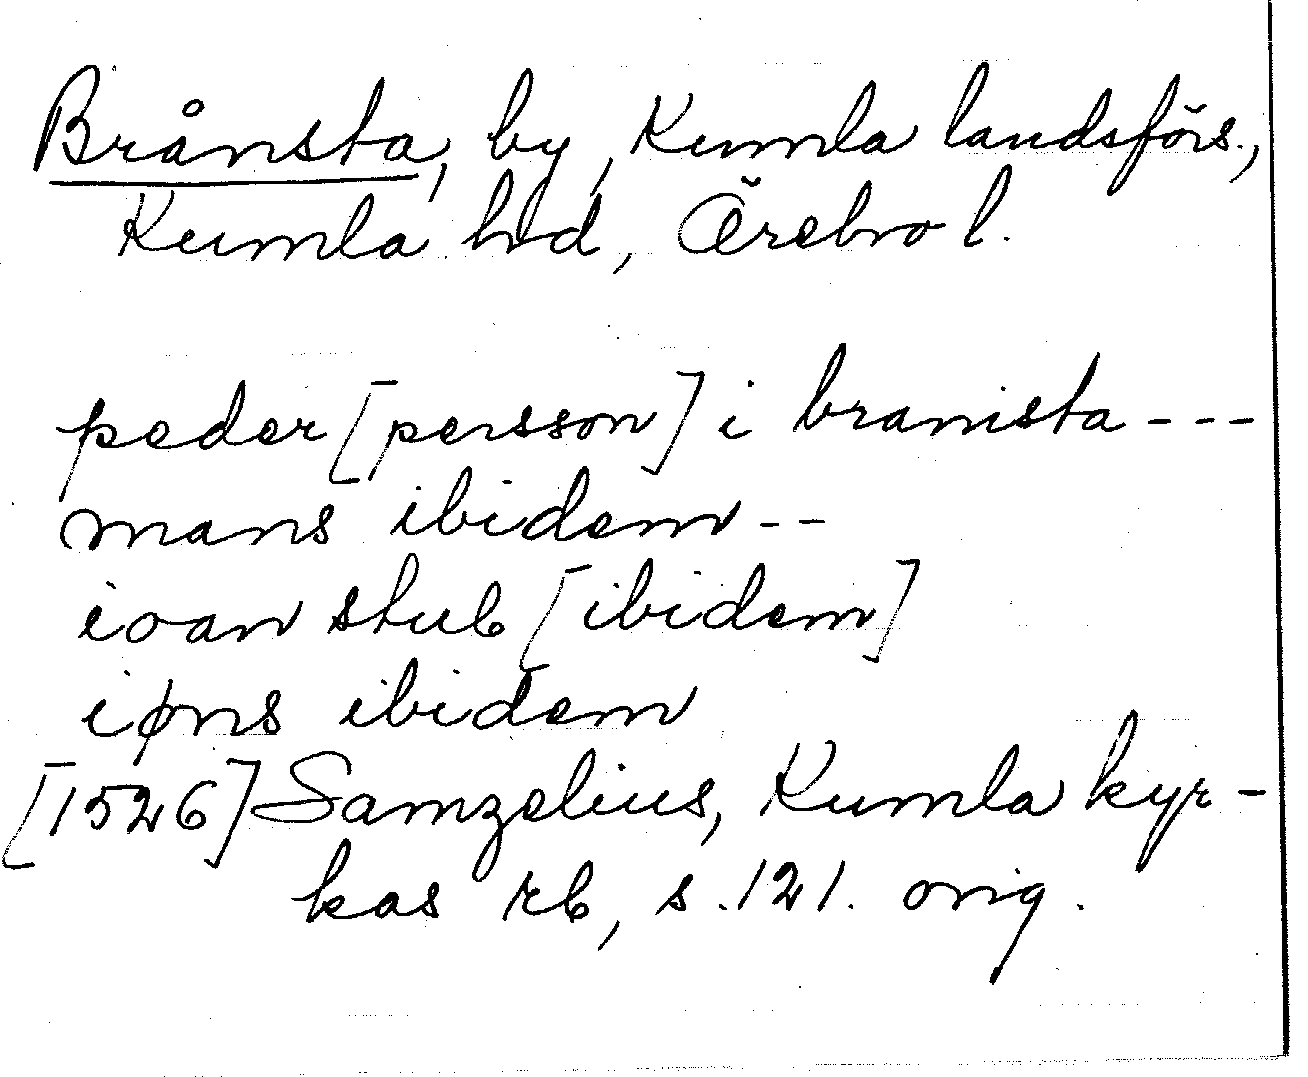 Brånsta, by, Kumla landsförs.,
Kumla hd, Örebro l.
peder [persson] i bramsta ---
mans ibidem --
ioan stub [ibidem]
iøns ibidem
[1526] Samzelius, Kumla kyr-
kas rb, s. 121. orig.